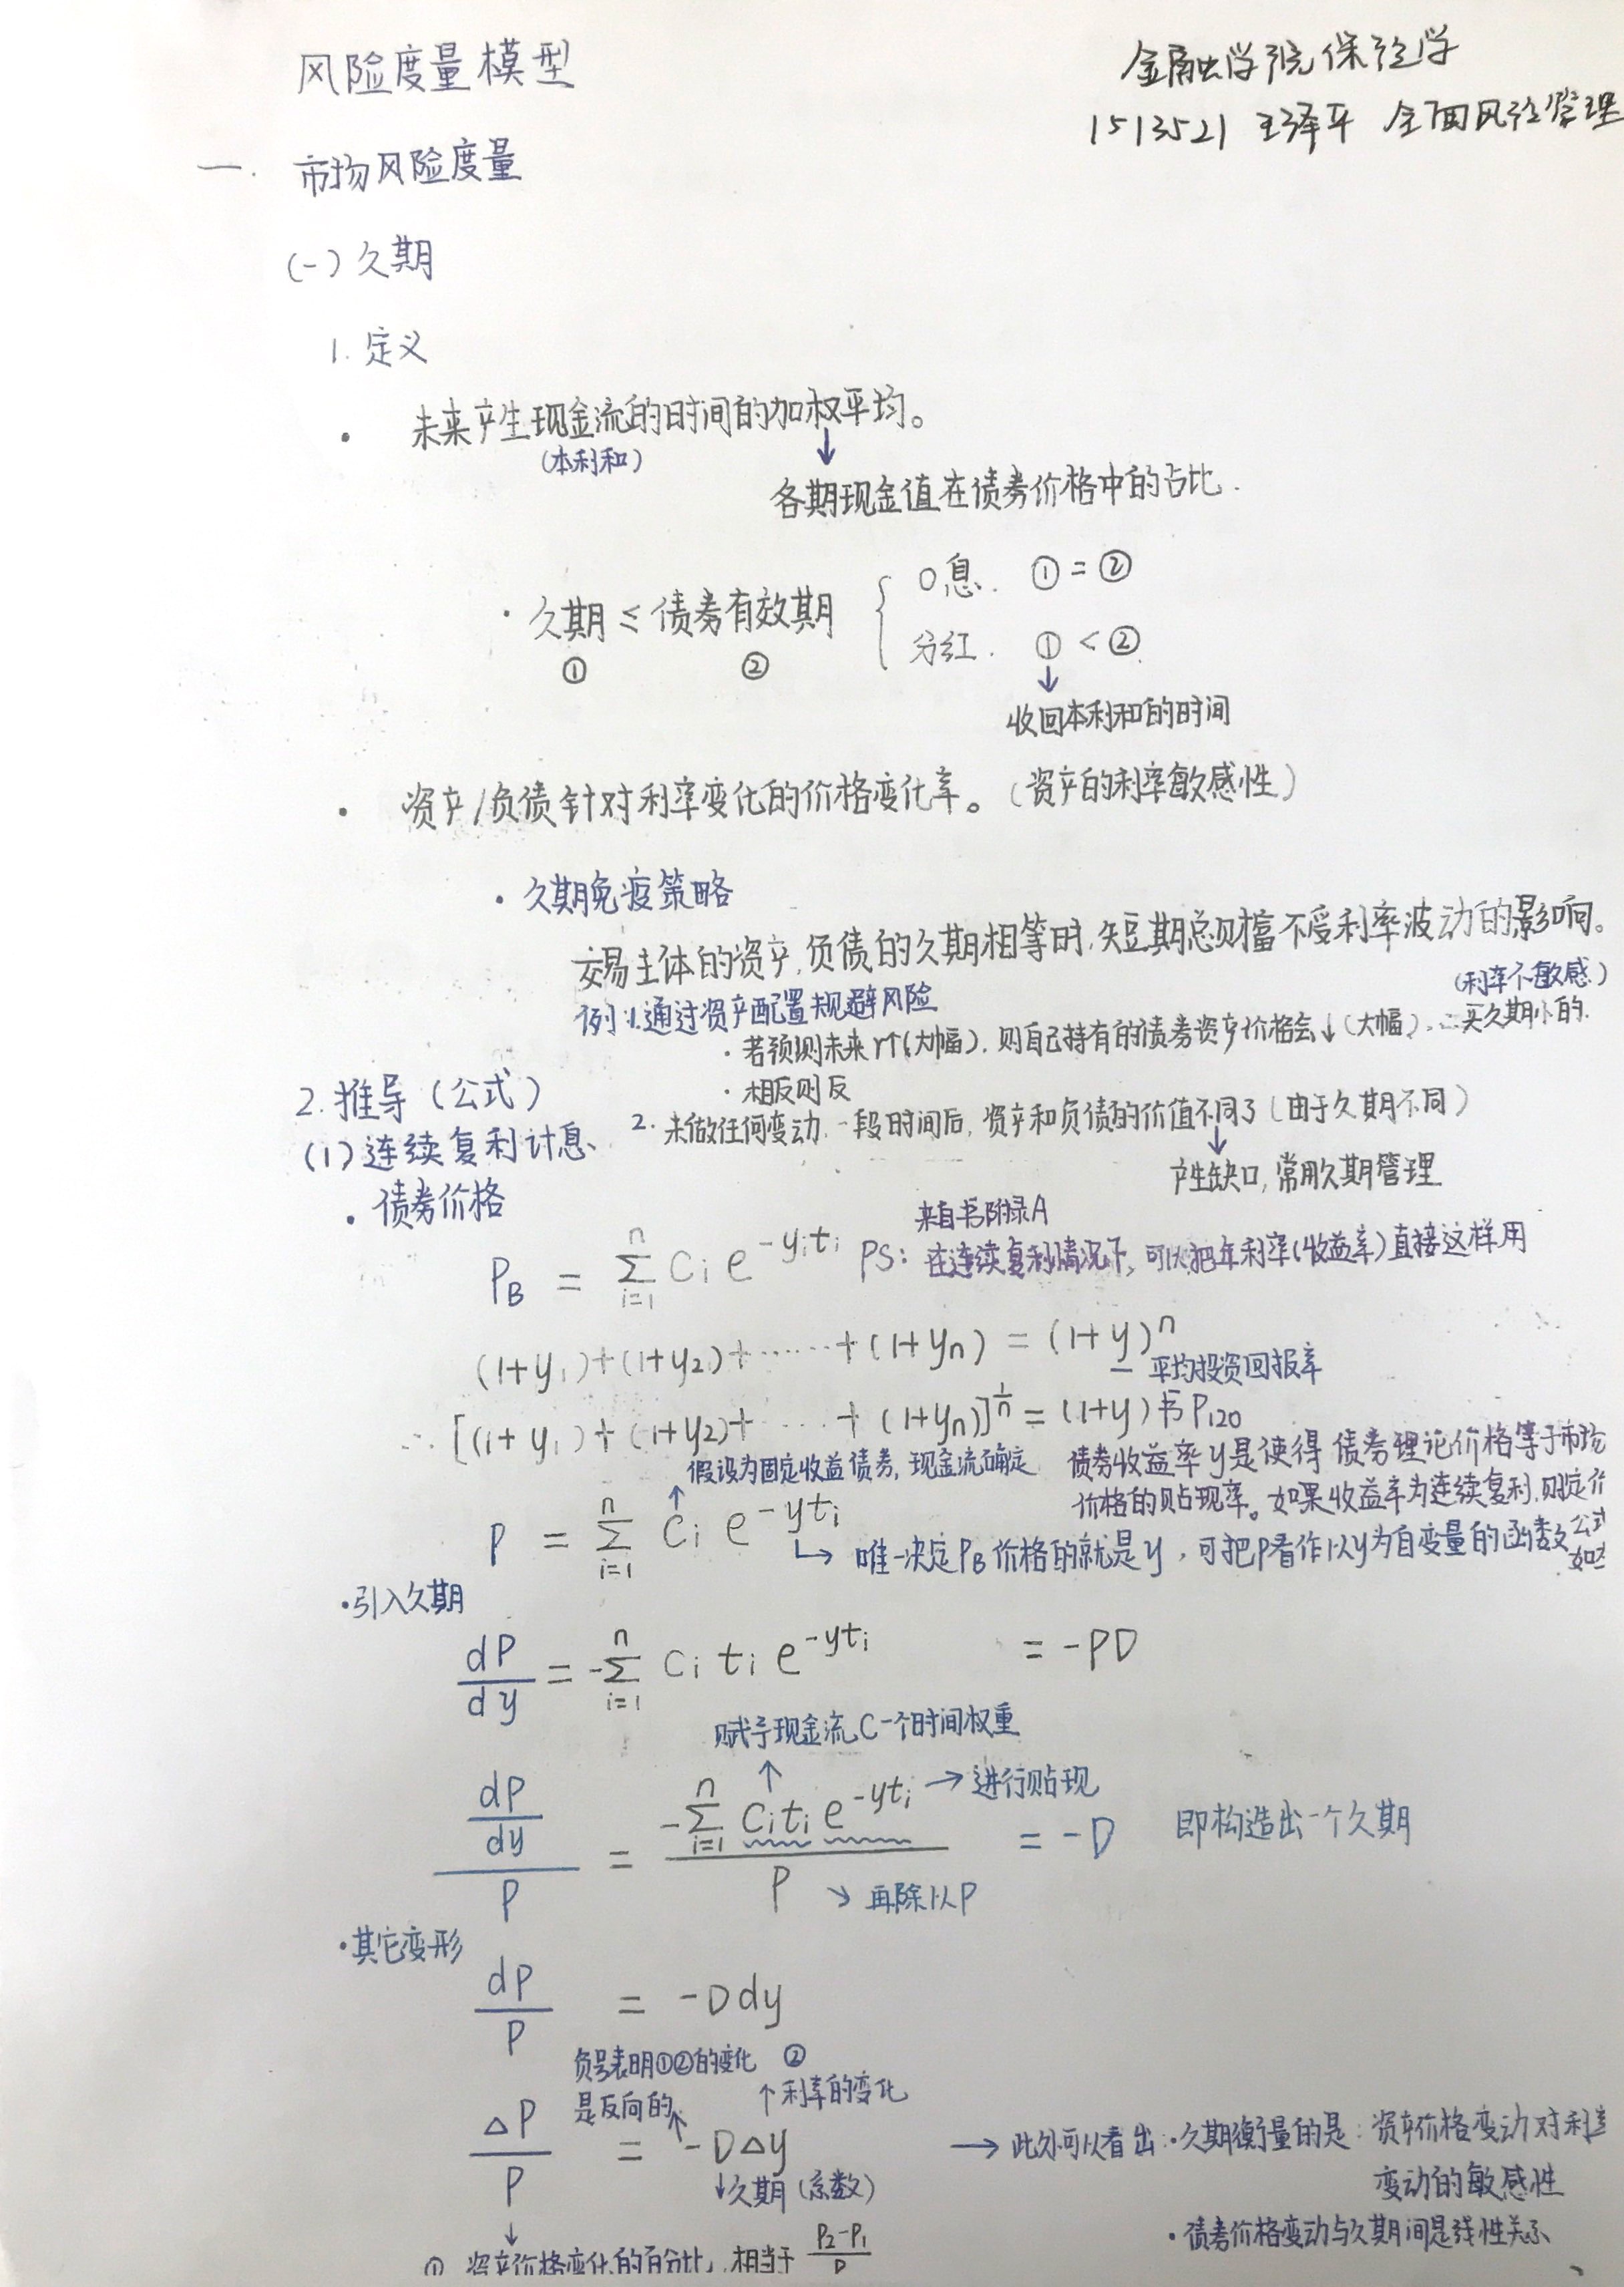 风险度量模型
金融学院保险学
1513521 王泽平 全面风险管理
一. 市场风险度量
(一) 久期
1. 定义
· 未来产生现金流的时间的加权平均。
(本利和)
↓
各期现金值在债券价格中的占比.
· 久期 ≤ 债券有效期
① ②
{ 0息. ① = ②
分红. ① < ②
↓
收回本利和的时间
· 资产/负债针对利率变化的价格变化率。(资产的利率敏感性)
· 久期免疫策略
交易主体的资产,负债的久期相等时,短期总财富不受利率波动的影响。
(利率不敏感)
例:1.通过资产配置规避风险
· 若预测未来r↑(大幅),则自己持有的债券资产价格会↓(大幅),∴买久期小的.
· 相反则反
2. 推导(公式)
2. 未做任何变动,一段时间后,资产和负债的价值不同了(由于久期不同)
↓
产生缺口,常用久期管理
(1)连续复利计息、
· 债券价格
来自书附录A
P_B = Σ_{i=1}^{n} C_i e^{-y_i t_i} PS: 在连续复利情况下,可以把年利率(收益率)直接这样用
(1+y_1)+(1+y_2)+……+(1+y_n) = (1+y)^n
— 平均投资回报率
∴ [(1+y_1)+(1+y_2)+……+(1+y_n)]^{1/n} = (1+y) 书P120
假设为固定收益债券,现金流确定
↑
债券收益率y是使得债券理论价格等于市场
价格的贴现率。如果收益率为连续复利,则定价
公式
如左
P = Σ_{i=1}^{n} C_i e^{-yt_i}
↳ 唯一决定P_B价格的就是y,可把P看作以y为自变量的函数
·引入久期
dP/dy = -Σ_{i=1}^{n} C_i t_i e^{-yt_i} = -PD
赋予现金流C一个时间权重
↑
(dP/dy)/P = (-Σ_{i=1}^{n} C_i t_i e^{-yt_i})/P = -D 即构造出一个久期
→进行贴现
↘ 再除以P
·其它变形
dP/P = -Ddy
负号表明①②的变化
是反向的↑
②
↑利率的变化
△P/P = -D△y
↓久期(系数)
→ 此外可以看出:·久期衡量的是:资产价格变动对利率
变动的敏感性
·债券价格变动与久期间是线性关系
↓
① 资产价格变化的百分比,相当于 (P_2-P_1)/P